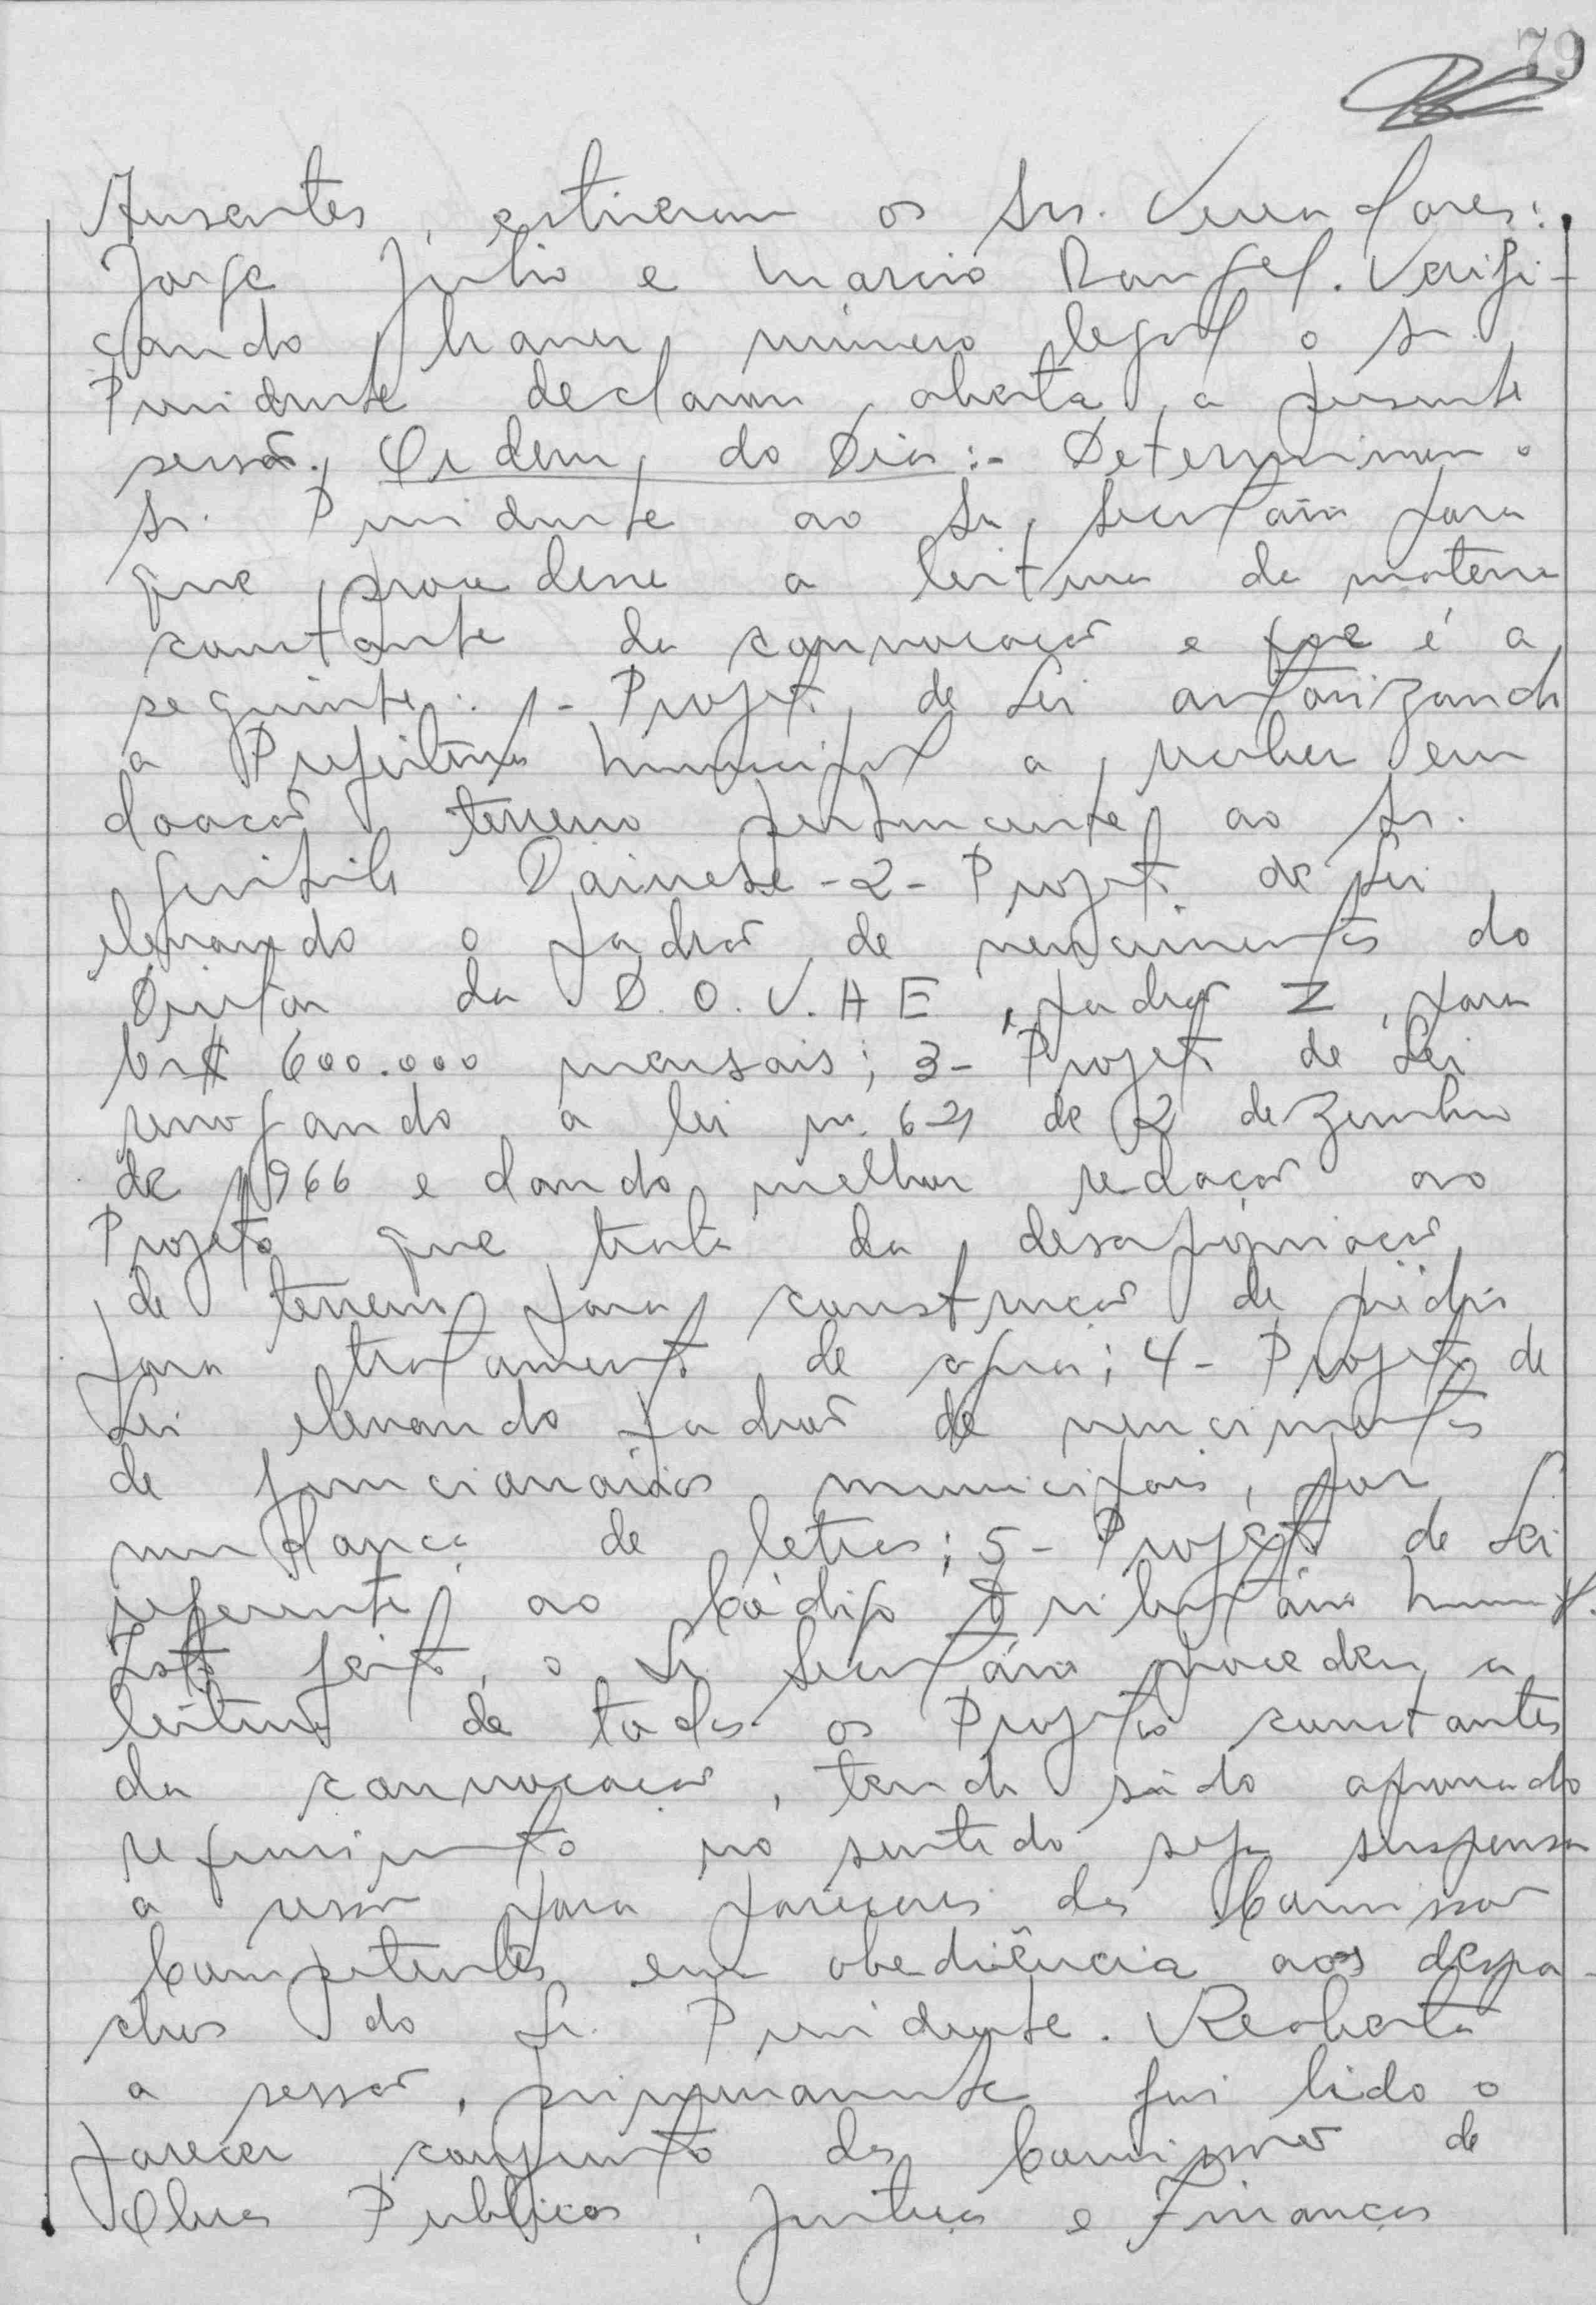 79
Ausentes, estiveram os Srs. Vereadores:
Jorge Julio e Marcio Rangel. Verifi-
cando haver número legal o Sr.
Presidente declarou aberta a presente
sessão. Ordem do Dia:- Determinou o
Sr. Presidente ao Sr. Secretário para
que procedesse a leitura da materia
constante da convocação e que é a
seguinte: 1- Projeto de Lei autorizando
a Prefeitura Municipal a receber em
doação terreno pertencente ao Sr.
Gentile Dainese -2- Projeto de Lei
elevando o padrão de vencimentos do
Diretor da D.O.V.A E, padrão Z, para
Cr$ 600.000 mensais; 3- Projeto de Lei
revogando a lei n. 621 de 2 dezembro
de 1966 e dando melhor redação ao
Projeto que trata da desapropriação
de terreno para construção de prédio
para tratamento de agua; 4- Projeto de
Lei elevando padrão de vencimentos
de funcionários municipais, por
mudança de letras; 5- Projeto de Lei
referente ao Código Tributário Municipal.
Isto feito, o Sr. Secretário procedeu a
leitura de todos os Projetos constantes
da convocação, tendo sido aprovado
requerimento no sentido seja suspensa
a sessão para pareceres das Comissão
Competentes em obediência aos despa-
chos do Sr. Presidente. Reaberta
a sessão, primeiramente foi lido o
parecer conjunto das Comissões de
Obras Publicas, Justiça e Finanças